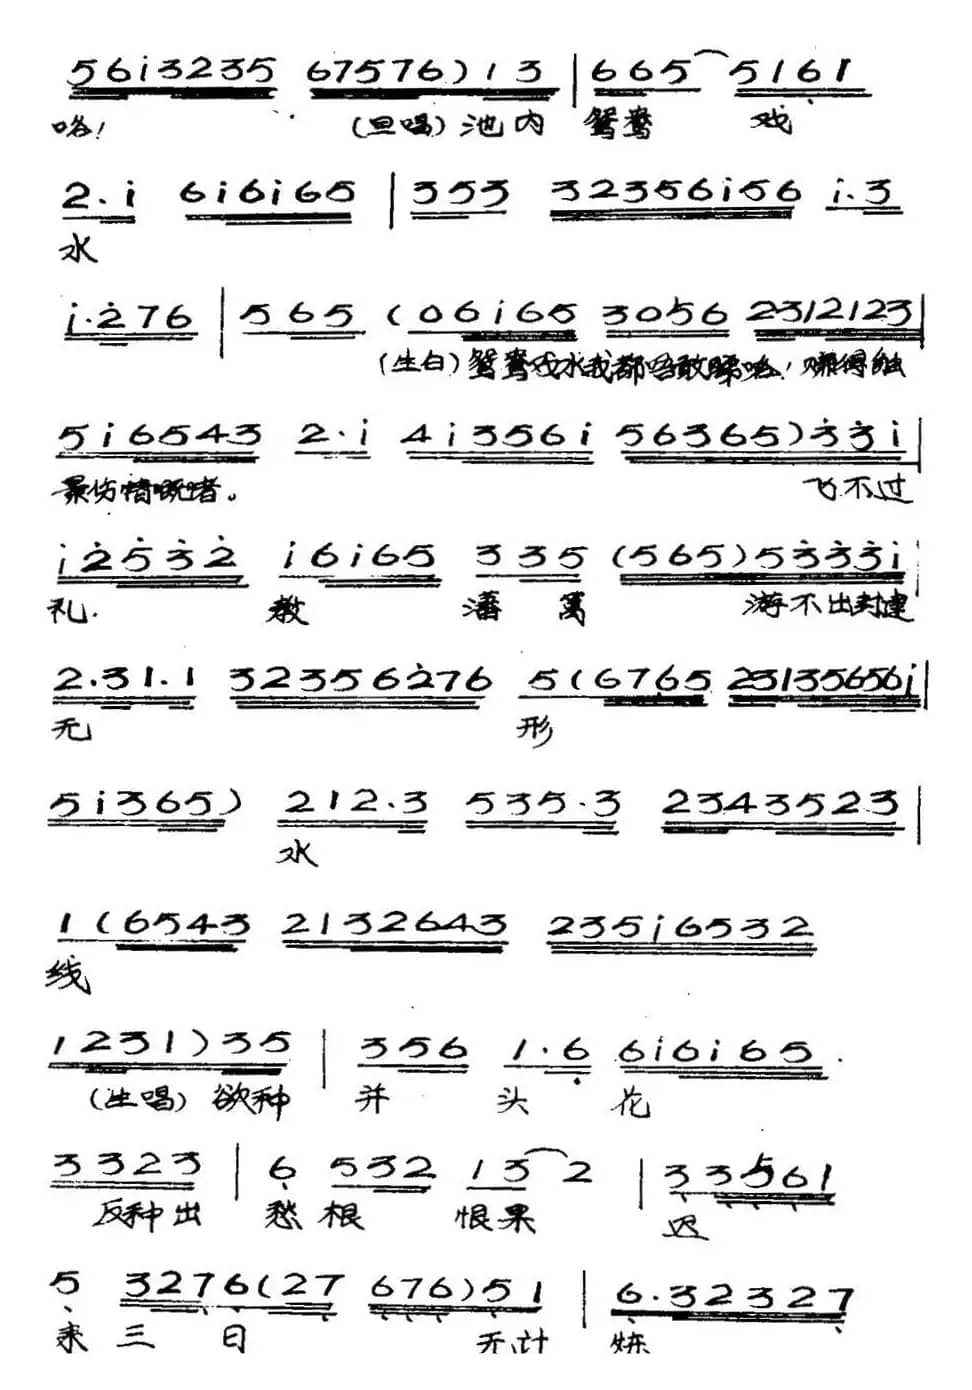 56i3235 67576)13 | 665 5161
咯！ (旦唱)池内 鸳鸯 戏
2.i 6i6i65 | 353 32356i56 i.3
水
i.276 | 565 (06i65 3056 2312123 |
(生白)鸳鸯戏水我都唔敢睇咯！赚得个
5i6543 2.i 4i356i 56365)33i |
景伤情嘅啫。 飞不过
i2532 i6i65 335 (565)5333i |
礼. 教 藩篱 游不出封建
2.31.1 32356276 5(6765 23135656i |
无 形
5i365) 212.3 535.3 2343523 |
水
1(6543 2132643 235i6532
线
1231)35 | 356 1.6 6i6i65
(生唱)欲种 并 头 花
3323 | 6 532 13 2 | 33561
反种出 愁根 恨果 迟
5 3276(27 676)51 | 6.32327
来三 日 无计